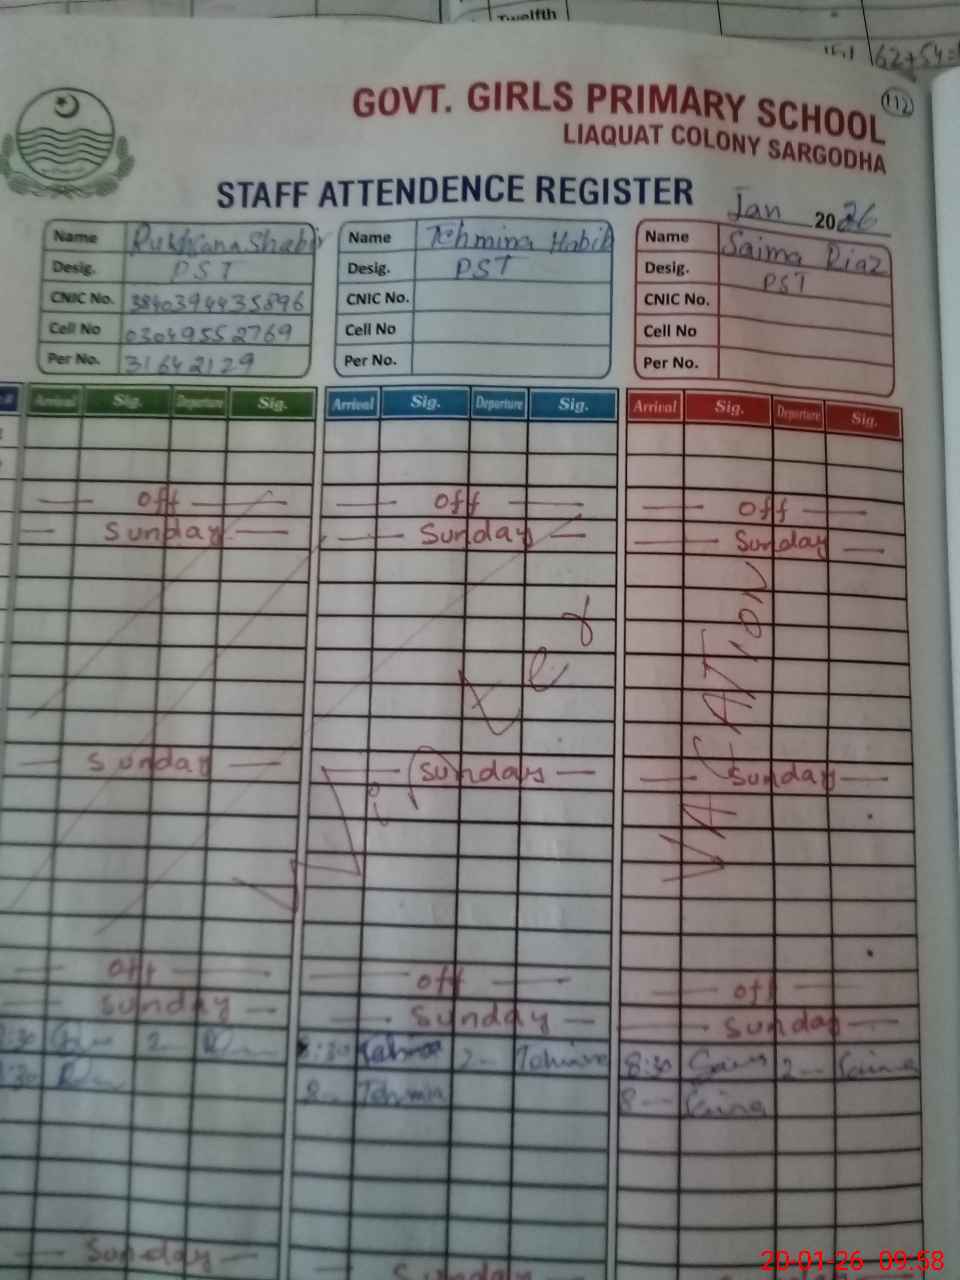 Twelfth
62+54=
112
GOVT. GIRLS PRIMARY SCHOOL
LIAQUAT COLONY SARGODHA
STAFF ATTENDENCE REGISTER
Jan 2026
Name Rukhsana Shabir
Desig. PST
CNIC No. 3840394435896
Cell No 03049552769
Per No. 31642129
Name Tehmina Habib
Desig. PST
CNIC No.
Cell No
Per No.
Name Saima Riaz
Desig. PST
CNIC No.
Cell No
Per No.
Arrival Sig. Departure Sig. Arrival Sig. Departure Sig. Arrival Sig. Departure Sig.
off off off
Sunday Sunday Sunday
Winter VACATION
Sunday Sundays Sunday
off off off
Sunday Sunday Sunday
:30 2 8:30 2 Tehmina 8:30 Saima 2 Saima
:30 8 Tehmin 8 Saima
Sunday Sunday
20-01-26 09:58